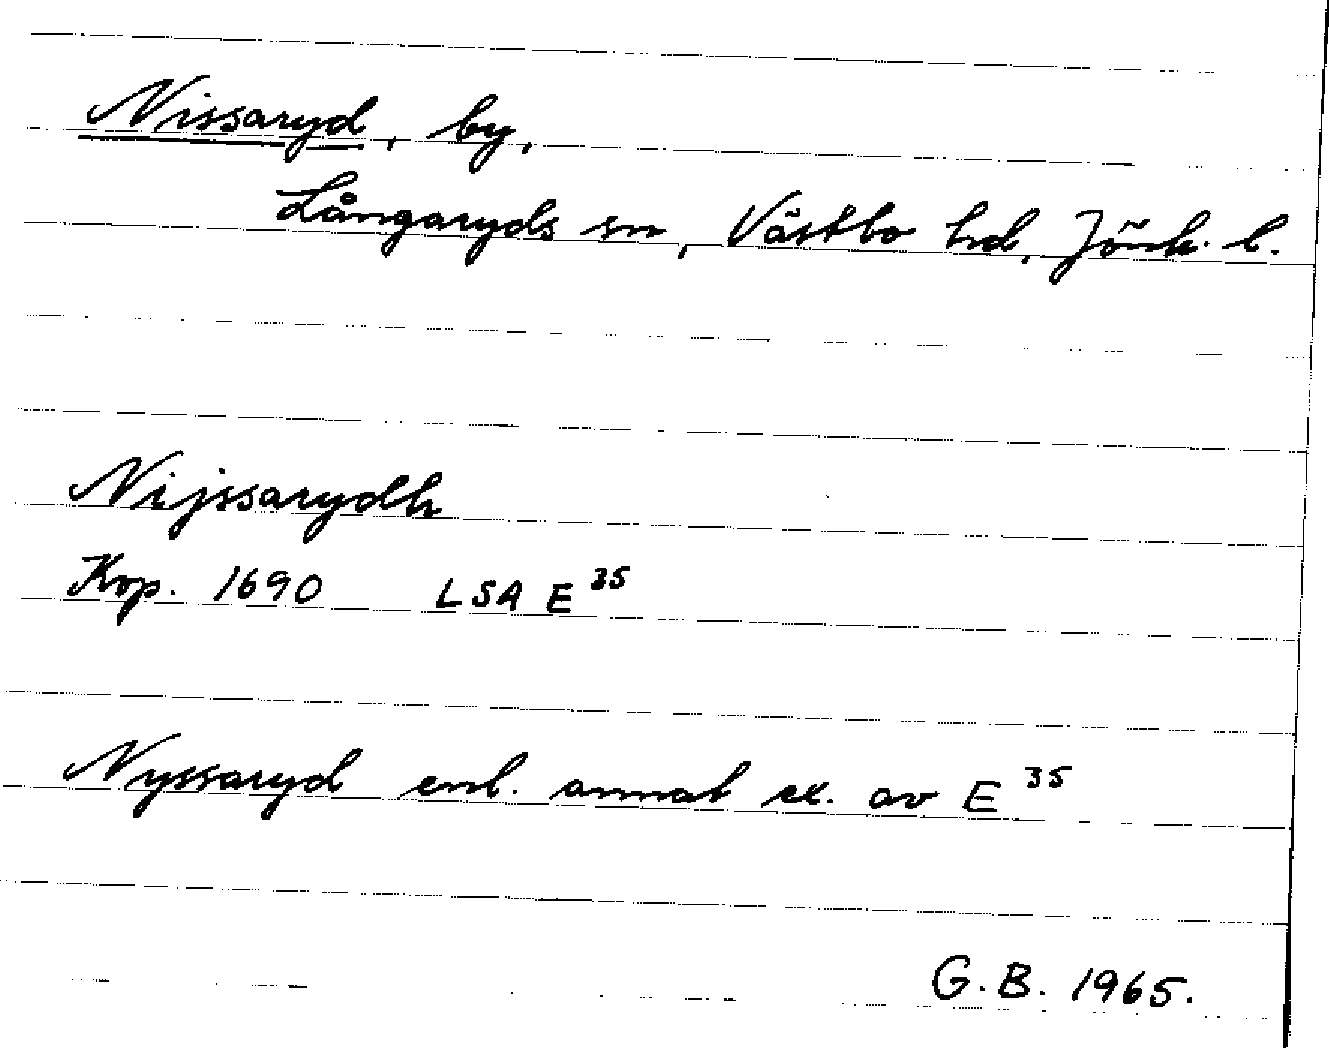 Nissaryd, by,
Långaryds sn, Västbo hd, Jönk. l.
Nijssarydh
Kop. 1690 LSA E 35
Nyssaryd enl. annat ex. av E 35
G.B. 1965.